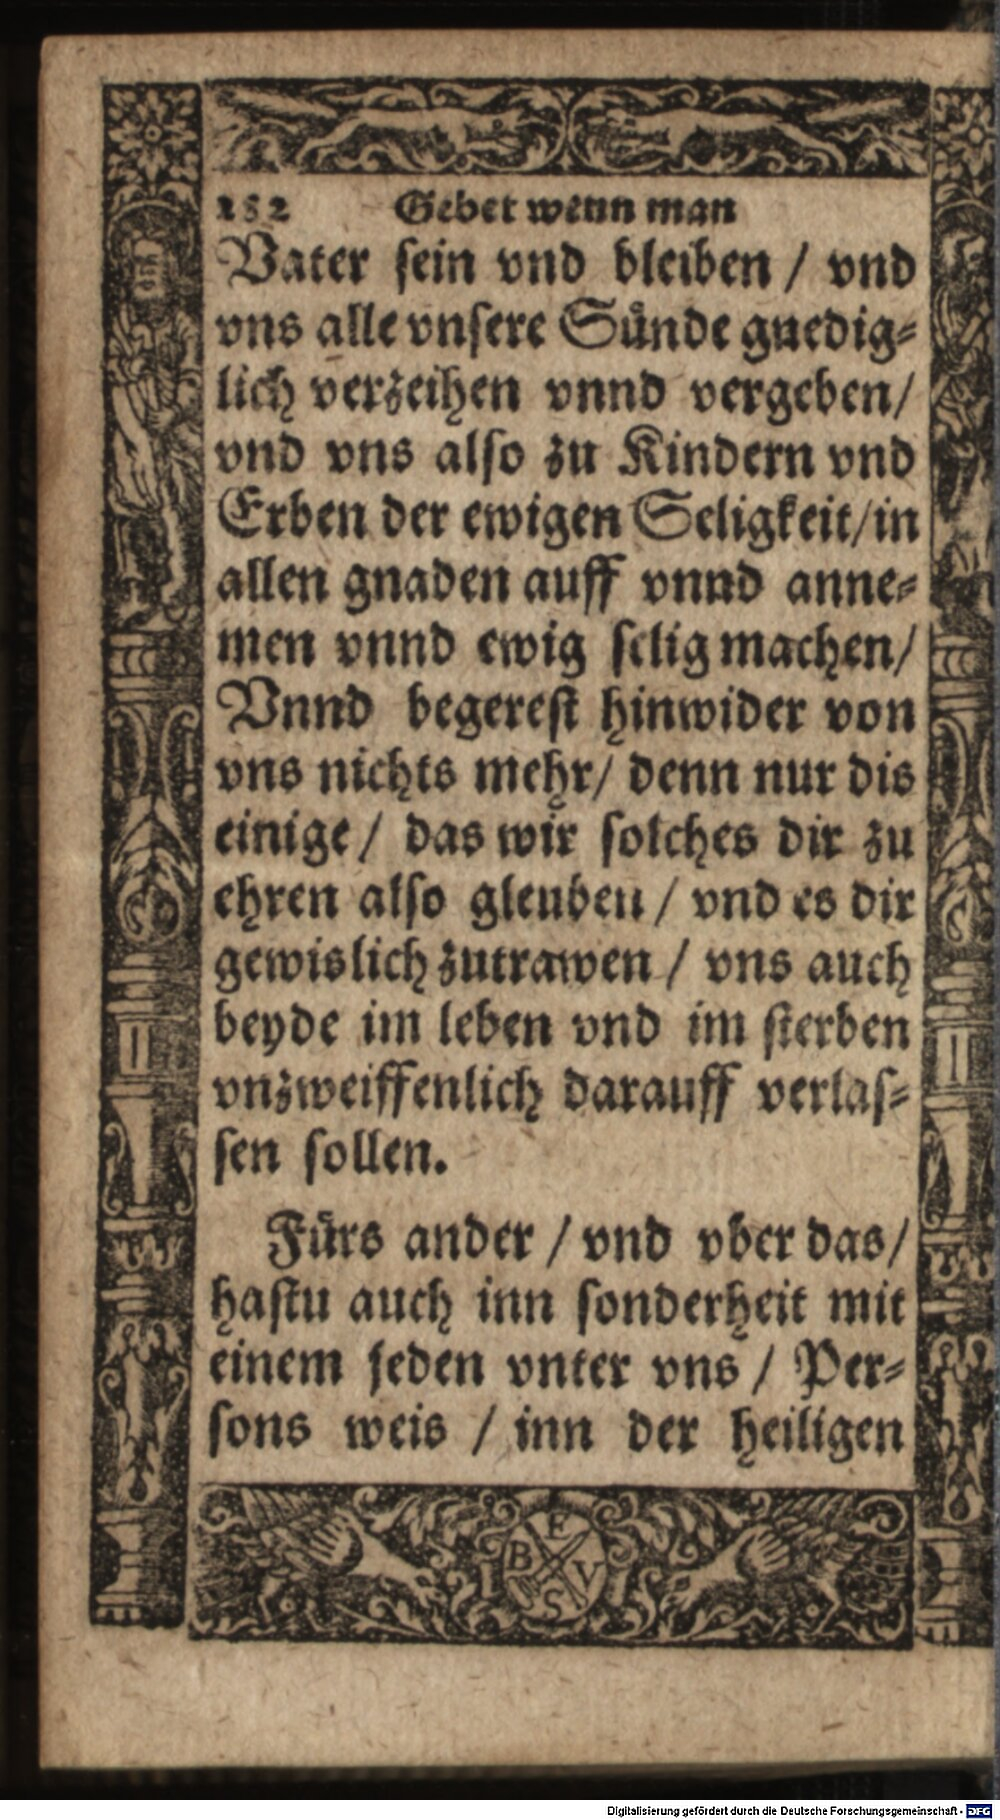 182 Gebet wenn man
Vater sein vnd bleiben / vnd
vns alle vnsere Sünde gnedig⸗
lich verzeihen vnnd vergeben/
vnd vns also zu Kindern vnd
Erben der ewigen Seligkeit/in
allen gnaden auff vnnd anne⸗
men vnnd ewig selig machen/
Vnnd begerest hinwider von
vns nichts mehr/ denn nur dis
einige / das wir solches dir zu
ehren also gleuben / vnd es dir
gewislich zutrawen / vns auch
beyde im leben vnd im sterben
vnzweiffenlich darauff verlas⸗
sen sollen.
Fürs ander / vnd vber das/
hastu auch inn sonderheit mit
einem jeden vnter vns / Per⸗
sons weis / inn der heiligen
E
B V
S
Digitalisierung gefördert durch die Deutsche Forschungsgemeinschaft - DFG